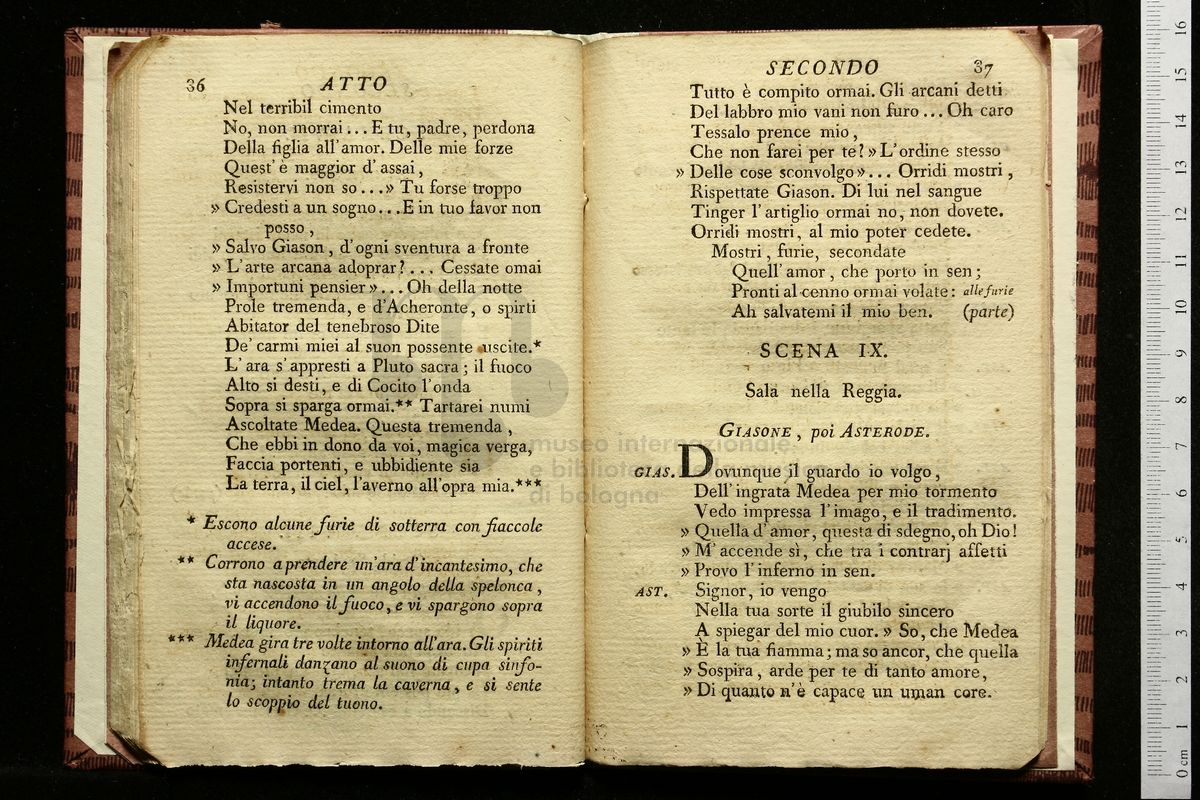 36 ATTO
Nel terribil cimento
No, non morrai... E tu, padre, perdona
Della figlia all'amor. Delle mie forze
Quest' è maggior d' assai,
Resistervi non so...» Tu forse troppo
» Credesti a un sogno...E in tuo favor non
posso,
» Salvo Giason, d'ogni sventura a fronte
» L'arte arcana adoprar?... Cessate omai
» Importuni pensier»... Oh della notte
Prole tremenda, e d'Acheronte, o spirti
Abitator del tenebroso Dite
De' carmi miei al suon possente uscite.*
L' ara s'appresti a Pluto sacra; il fuoco
Alto si desti, e di Cocito l'onda
Sopra si sparga ormai.** Tartarei numi
Ascoltate Medea. Questa tremenda,
Che ebbi in dono da voi, magica verga,
Faccia portenti, e ubbidiente sia
La terra, il ciel, l'averno all'opra mia.***
* Escono alcune furie di sotterra con fiaccole
accese.
** Corrono a prendere un'ara d'incantesimo, che
sta nascosta in un angolo della spelonca,
vi accendono il fuoco, e vi spargono sopra
il liquore.
*** Medea gira tre volte intorno all'ara. Gli spiriti
infernali danzano al suono di cupa sinfo-
nia; intanto trema la caverna, e si sente
lo scoppio del tuono.
SECONDO 37
Tutto è compito ormai. Gli arcani detti
Del labbro mio vani non furo... Oh caro
Tessalo prence mio,
Che non farei per te?» L'ordine stesso
» Delle cose sconvolgo»... Orridi mostri,
Rispettate Giason. Di lui nel sangue
Tinger l'artiglio ormai no, non dovete.
Orridi mostri, al mio poter cedete.
Mostri, furie, secondate
Quell'amor, che porto in sen;
Pronti al cenno ormai volate: alle furie
Ah salvatemi il mio ben. (parte)
SCENA IX.
Sala nella Reggia.
GIASONE, poi ASTERODE.
GIAS. Dovunque il guardo io volgo,
Dell'ingrata Medea per mio tormento
Vedo impressa l'imago, e il tradimento.
» Quella d'amor, questa di sdegno, oh Dio!
» M'accende sì, che tra i contrarj affetti
» Provo l'inferno in sen.
AST. Signor, io vengo
Nella tua sorte il giubilo sincero
A spiegar del mio cuor. » So, che Medea
» È la tua fiamma; ma so ancor, che quella
» Sospira, arde per te di tanto amore,
» Di quanto n'è capace un uman core.
museo internazionale
e biblioteca
di bologna
0 cm 1 2 3 4 5 6 7 8 9 10 11 12 13 14 15 16